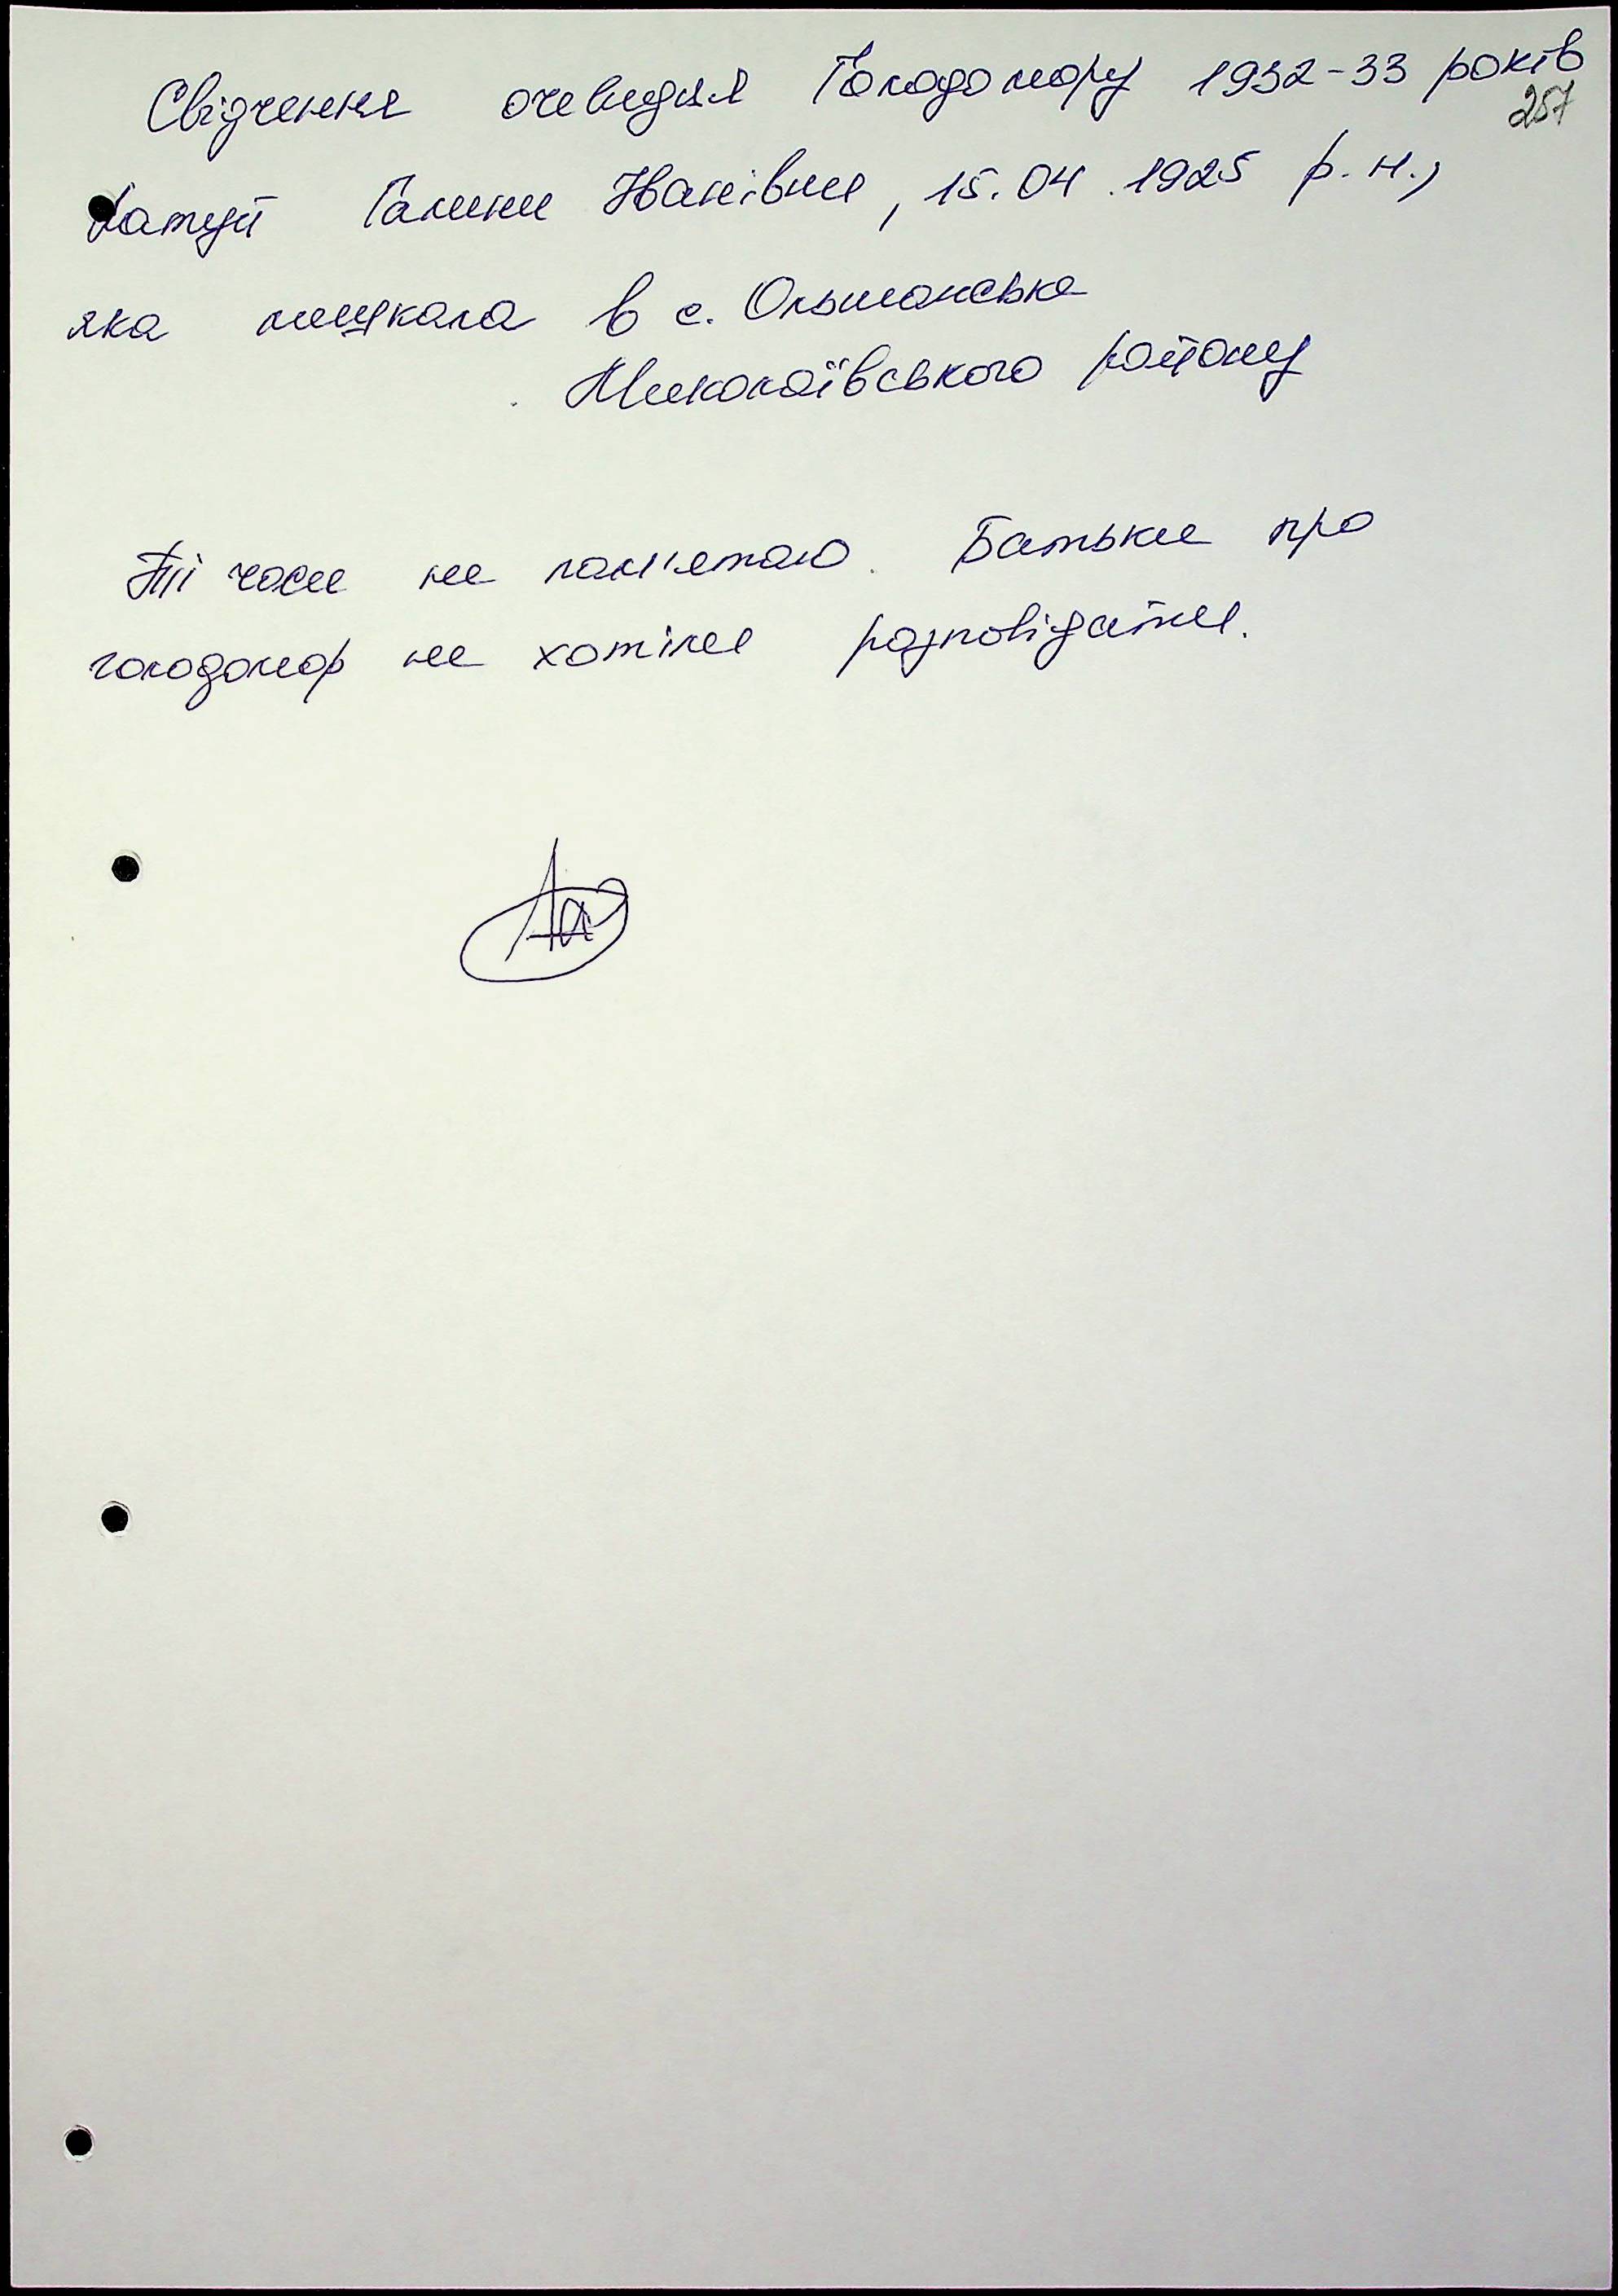 Свідчення очевидця Голодомору 1932-33 років
257
Галини Іванівни, 15.04.1925 р.н.,
яка мешкала в с. Ольшанське
Миколаївського району
Ті часи не пам'ятаю. Батьки про
голодомор не хотіли розповідати.